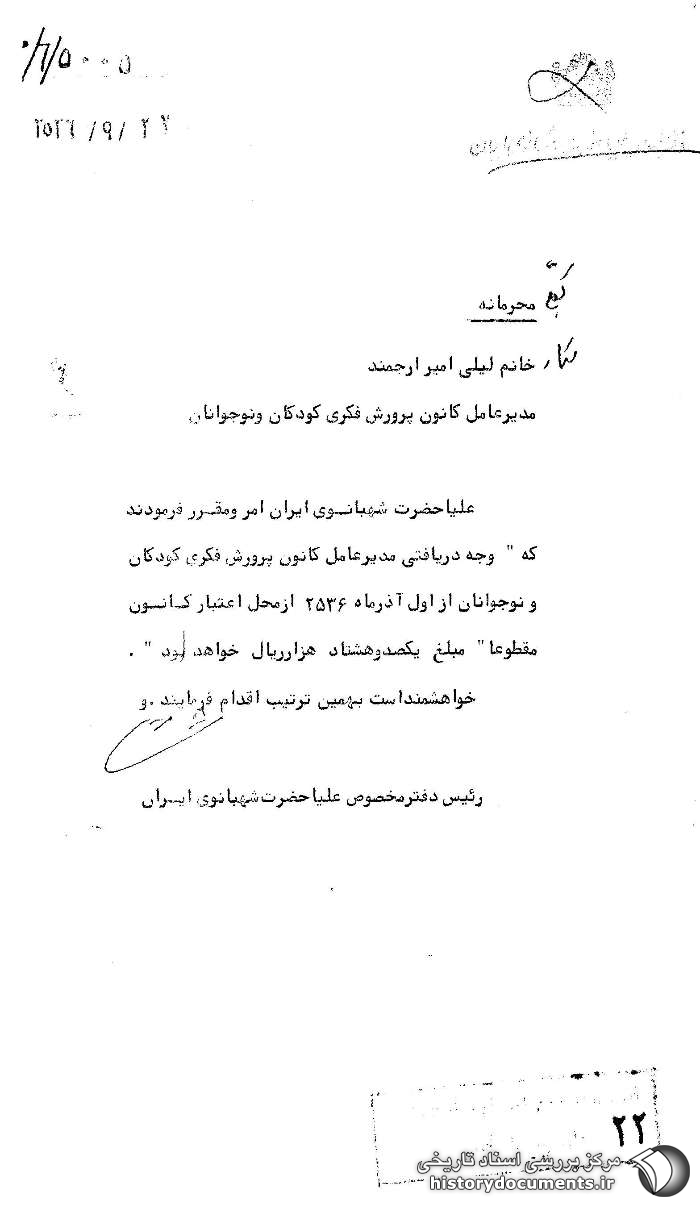 ۲۵۳۶/۹/۲۷
محرمانه
خانم لیلی امیر ارجمند
مدیرعامل کانون پرورش فکری کودکان ونوجوانان
علیاحضرت شهبانـوی ایران امر ومقـرر فرمودند
که " وجه دریافتی مدیرعامل کانون پرورش فکری کودکان
و نوجوانان از اول آذرماه ۲۵۳۶ ازمحل اعتبار کـانـون
مقطوعا" مبلغ یکصدوهشتاد هزارریال خواهد بود " .
خواهشمنداست بهمین ترتیب اقدام فرمایند .و
رئیس دفترمخصوص علیاحضرت شهبانوی ایـران
۲۲
مرکز بررسی اسناد تاریخی
historydocuments.ir